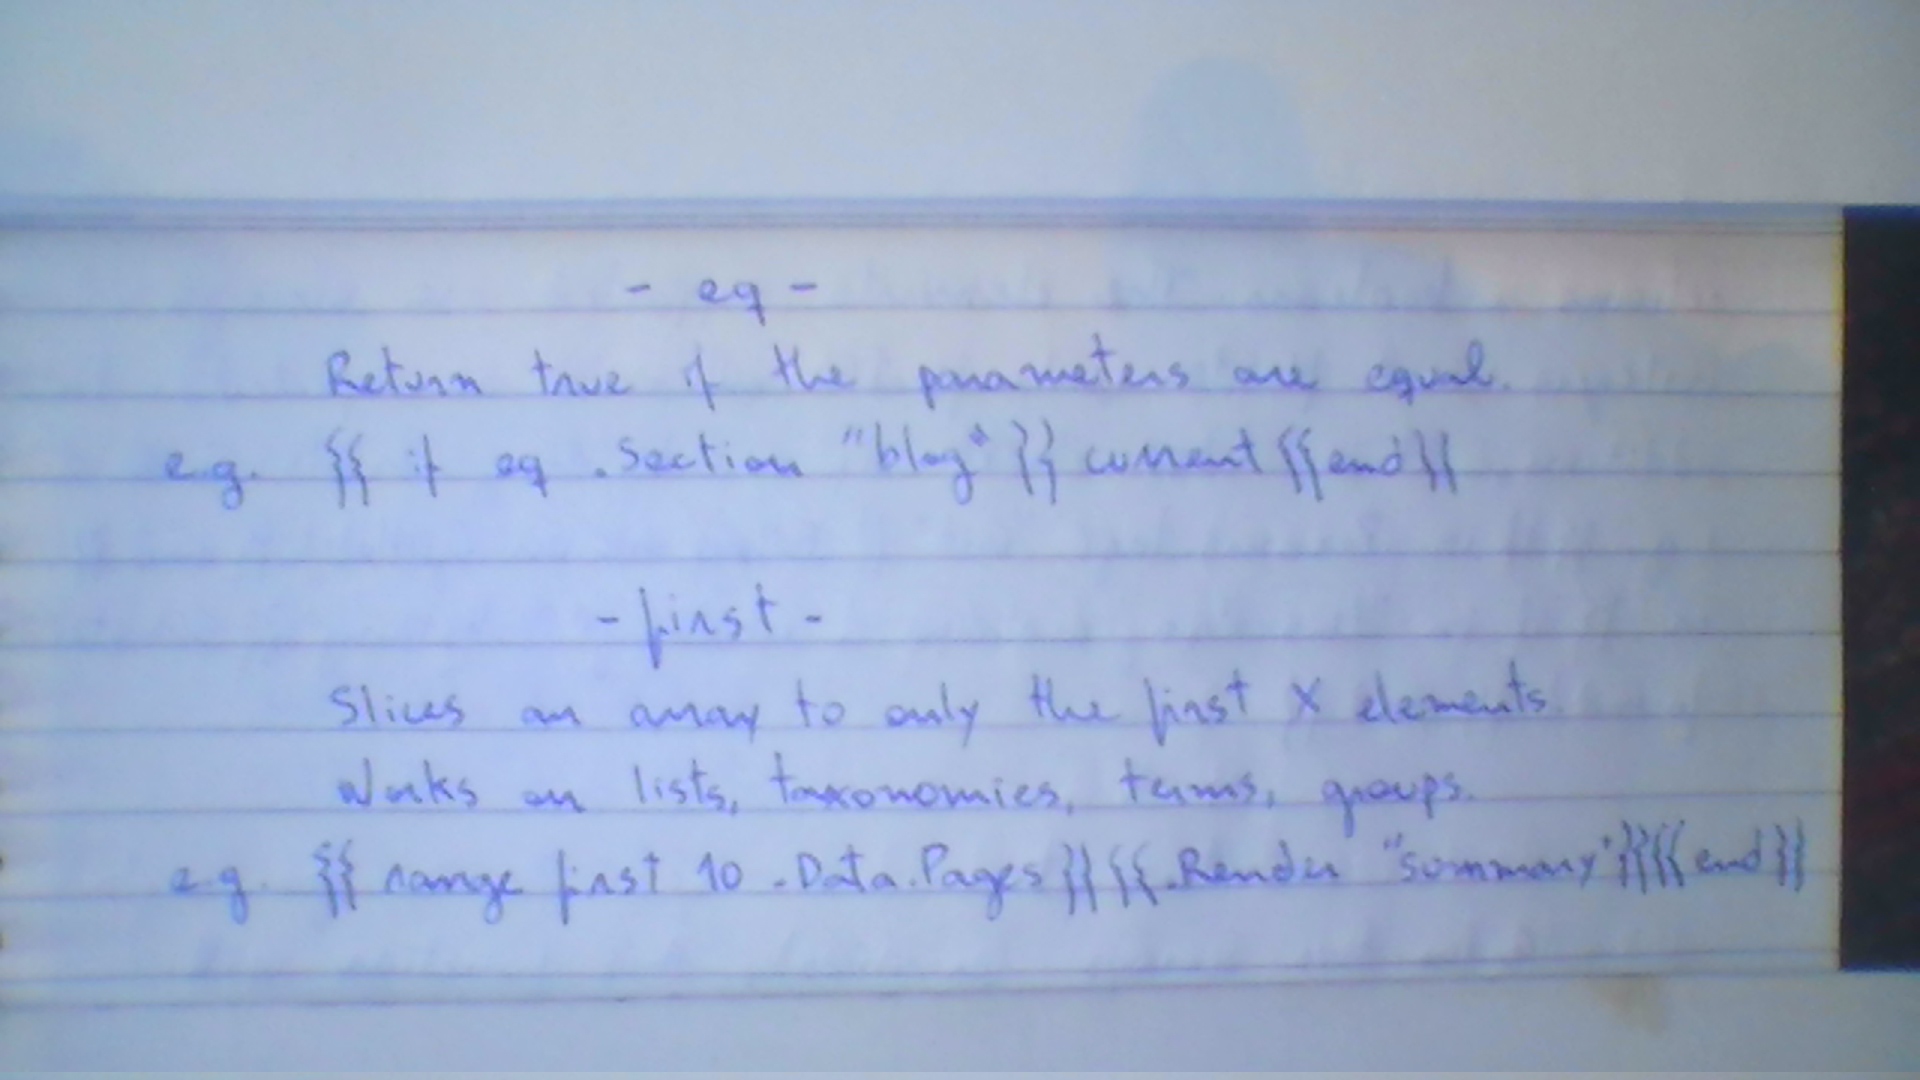 - eq -
Return true if the parameters are equal.
e.g. {{ if eq .Section "blog" }} current {{end}}
- first -
Slices an array to only the first X elements.
Works on lists, taxonomies, terms, groups.
e.g. {{ range first 10 .Data.Pages }} {{ .Render "summary" }}{{end}}